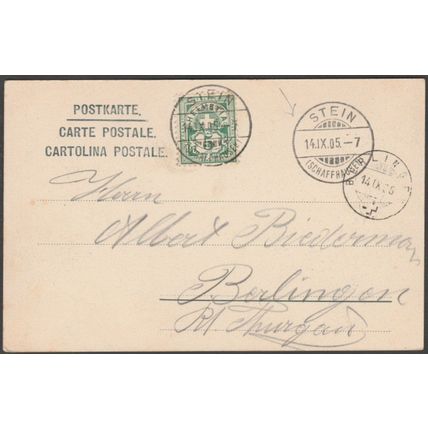 POSTKARTE.
CARTE POSTALE.
CARTOLINA POSTALE.
STEIN
5
STEIN
14.IX.05.-7
(SCHAFFHAUSEN)
14.IX.05
Herrn
Albert Biedermann
Berlingen
Kt. Thurgau